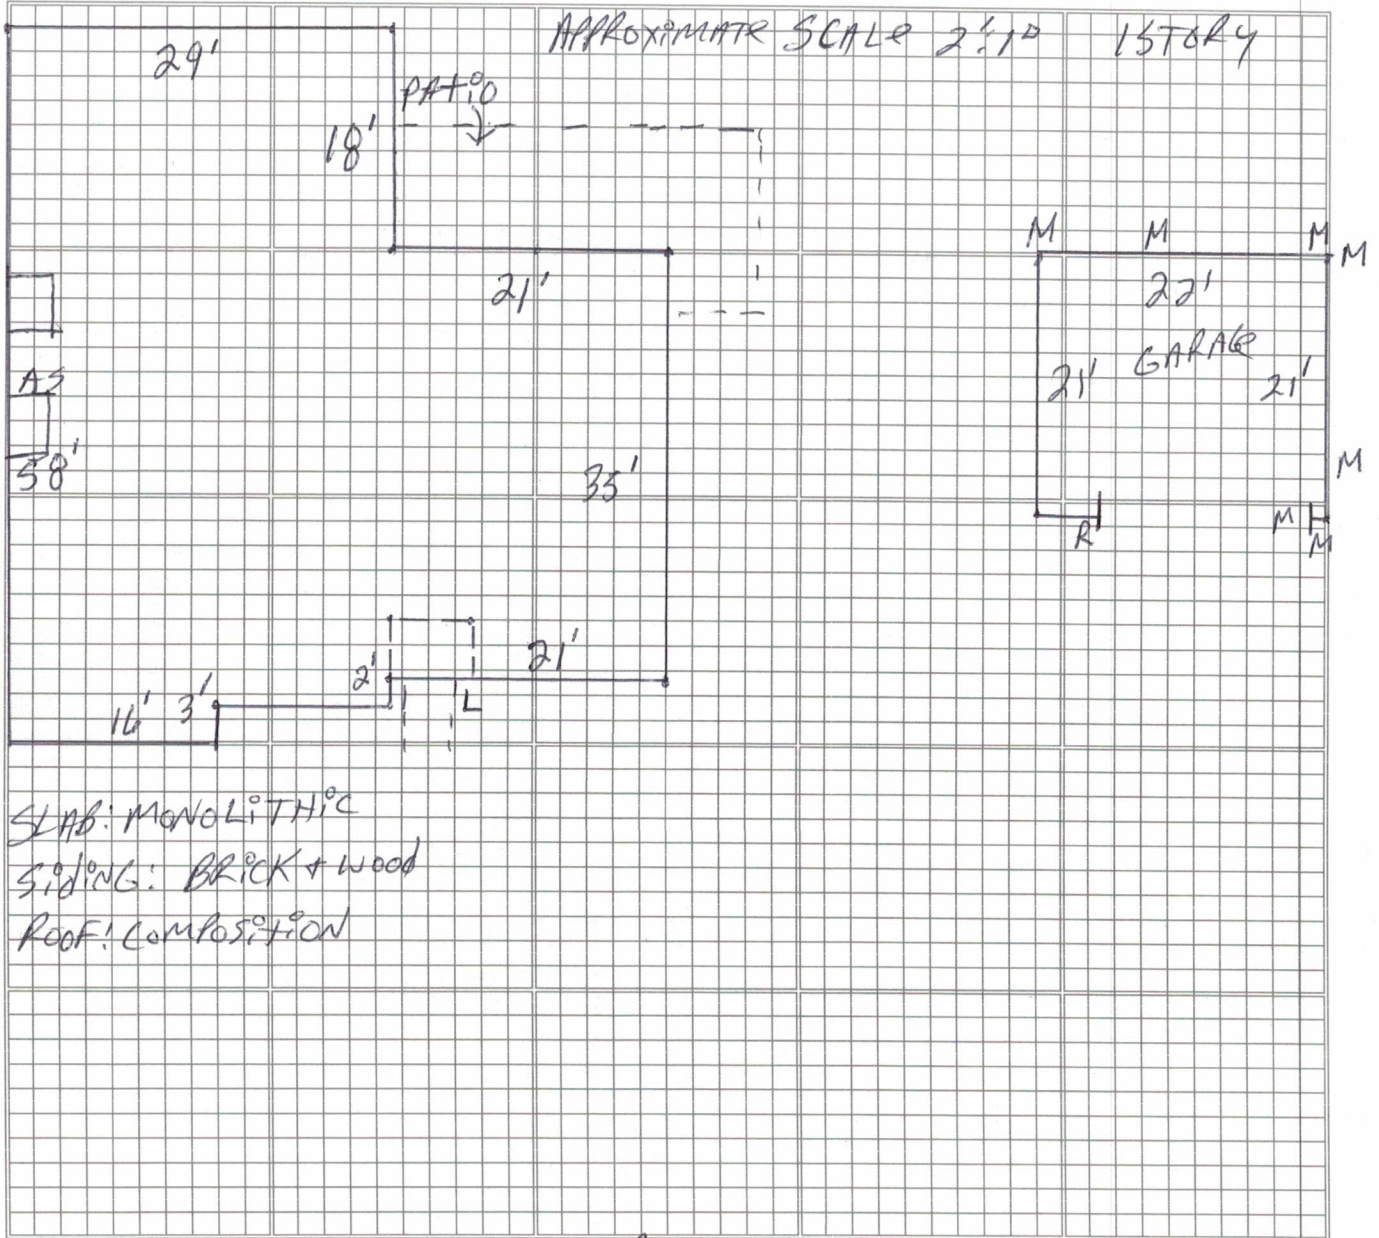 APPROXIMATE SCALE 2':1□ 1STORY
29'
PATIO
18'
M M M M
22'
21'
GARAGE
21' 21'
AS
58'
35'
M
M
R
M
21'
2'
L
16' 3'
SLAB: MONOLITHIC
SIDING: BRICK + WOOD
ROOF: COMPOSITION